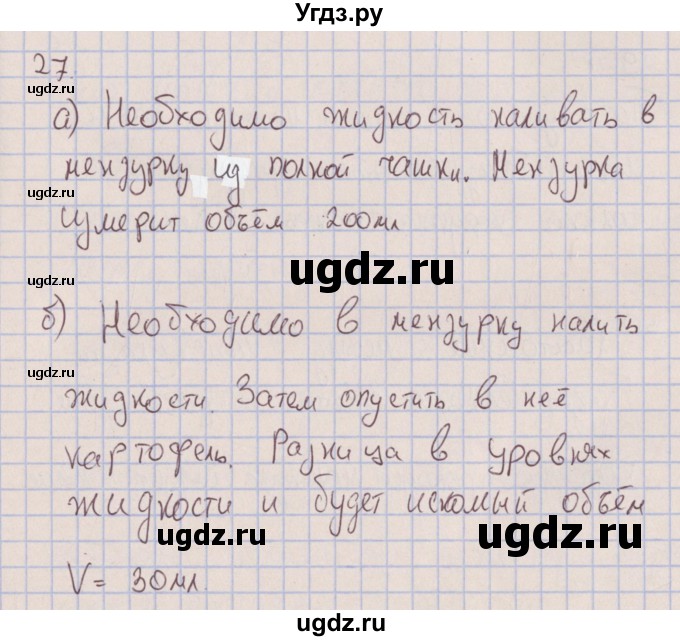 Угдз.ру
27.
ugdz.ru
а) Необходимо жидкость наливать в
ugdz.ru
мензурку из полной чашки. Мензурка
ugdz.ru
измерит объём 200мл
ugdz.ru
ugdz.ru
б) Необходимо в мензурку налить
ugdz.ru
жидкости. Затем опустить в неё
ugdz.ru
картофель. Разница в уровнях
жидкости и будет искомый объём
ugdz.ru
ugdz.ru
V = 30мл.
ugdz.ru